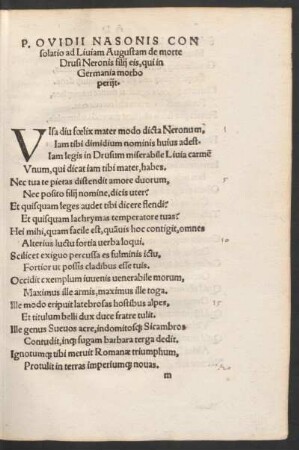 P. OVIDII NASONIS CON
solatio ad Liuiam Augustam de morte
Drusi Neronis filij eis, qui in
Germania morbo
perijt.
VIsa diu fœlix mater modo dicta Neronum, 1
Iam tibi dimidium nominis huius adest.
Iam legis in Drusum miserabile Liuia carmẽ
Vnum, qui dicat iam tibi mater, habes,
Nec tua te pietas distendit amore duorum, 5
Nec posito filij nomine, dicis uter?
Et quisquam leges audet tibi dicere flendi?
Et quisquam lachrymas temperat ore tuas?
Hei mihi, quam facile est, quãuis hoc contigit, omnes
Alterius luctu fortia uerba loqui, 10
Scilicet exiguo percussa es fulminis ictu,
Fortior ut possis cladibus esse tuis.
Occidit exemplum iuuenis uenerabile morum,
Maximus ille armis, maximus ille toga.
Ille modo eripuit latebrosas hostibus alpes, 15
Et titulum belli dux duce fratre tulit.
Ille genus Sueuos acre, indomitosq; Sicambros
Contudit, inq; fugam barbara terga dedit.
Ignotumq; tibi meruit Romanæ triumphum,
Protulit in terras imperiumq; nouas. 20
m